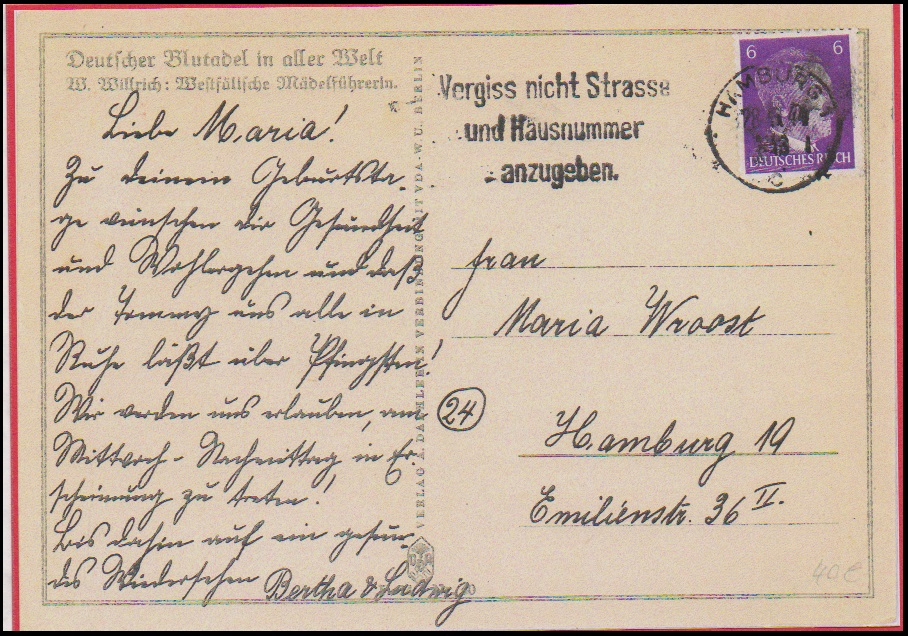 Deutscher Blutadel in aller Welt
W. Willrich: Westfälische Mädelführerin.
Liebe Maria!
Zu deinem Geburtsta-
ge wünschen dir Gesundheit
und Wohlergehn und daß
der Tommy uns alle in
Ruhe läßt über Pfingsten!
Wir werden uns erlauben, am
Mittwoch-Nachmittag in Er-
scheinung zu treten!
Bis dahin auf ein gesun-
des Wiedersehen
Bertha & Ludwig
IN VERBINDUNG MIT VDA-W.U. BERLIN
Vergiss nicht Strasse
und Hausnummer
anzugeben.
HAMBURG 1
6 6
DEUTSCHES REICH
Frau
Maria Wroost
24
Hamburg 19
Emilienstr. 36 II.
40€